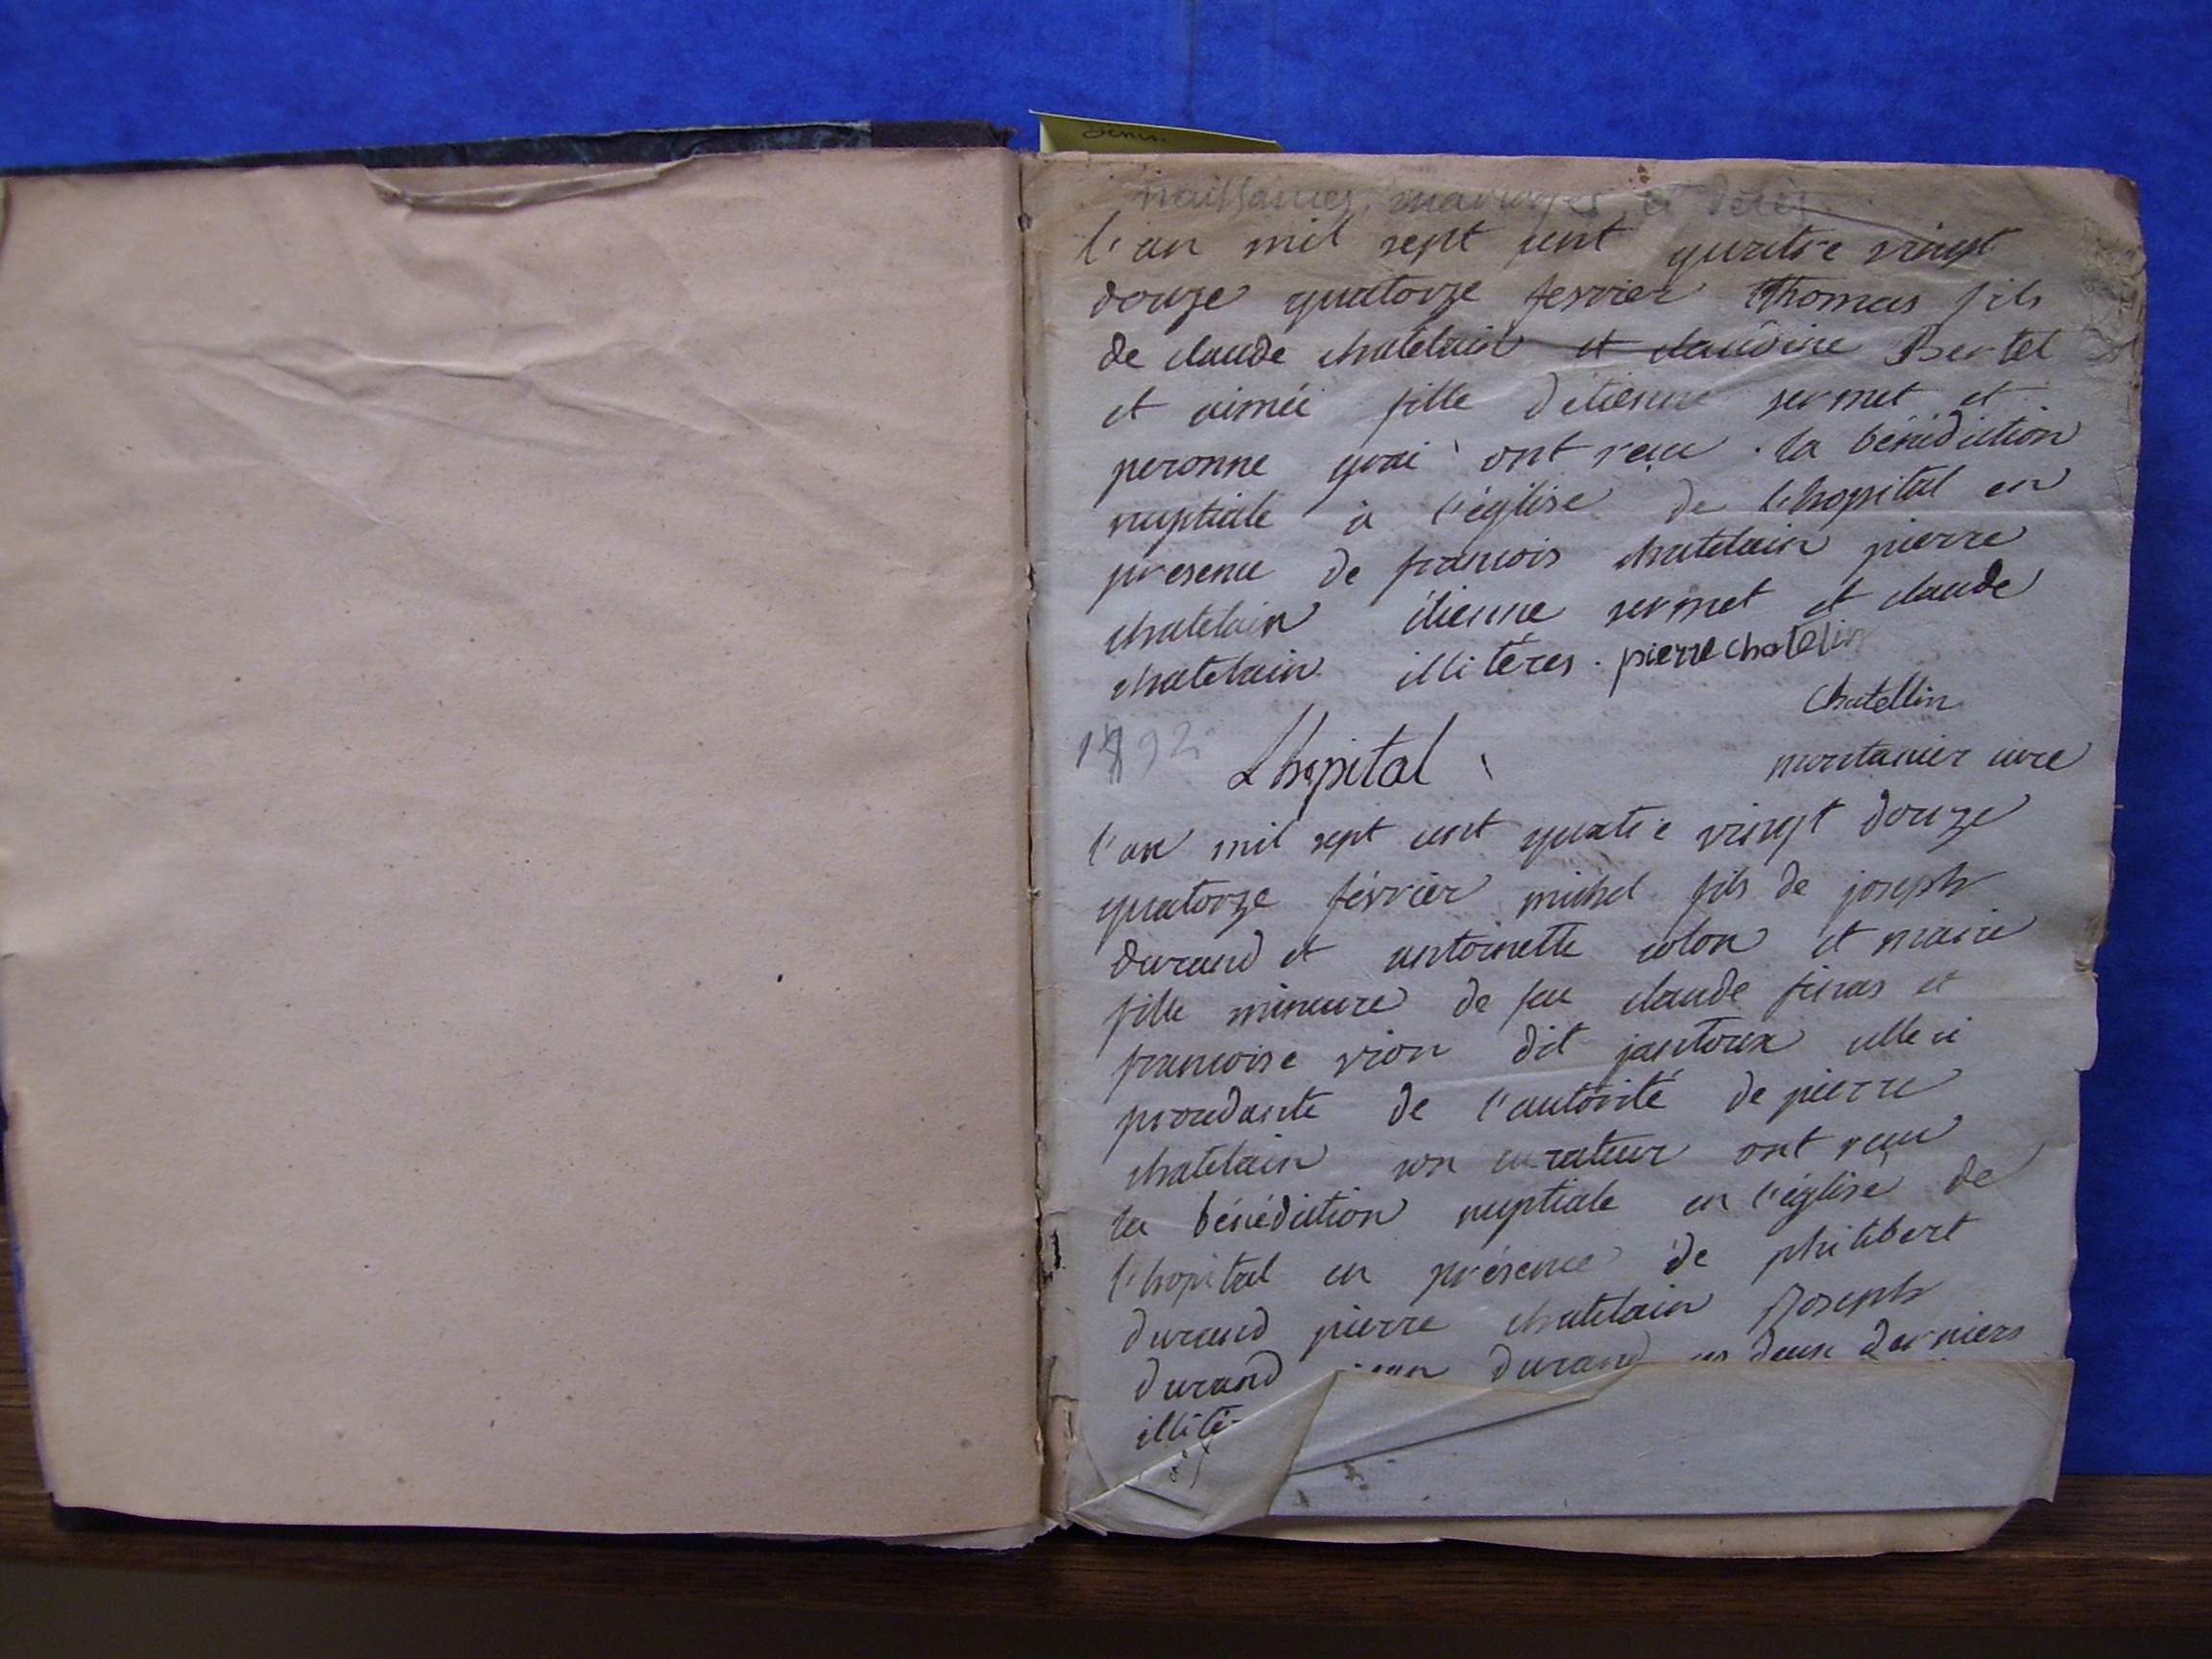 naissances, mariages et décès
l'an mil sept cent quatre vingt
douze quatorze fevrier Thomas fils
de claude chatelain et claudine Bertet
et aimée fille d'étienne sermet et
peronne qui ont reçu la bénédiction
nuptiale à l'église de l'hopital en
presence de francois chatelain pierre
chatelain étienne sermet et claude
chatelain illitéres. pierre chatelin
Chatellin
1792 Lhopital montanier cure
l'an mil sept cent quatre vingt douze
quatorze février michel fils de joseph
durand et antoinette colon et marie
fille mineure de feu claude finas et
francoise vion dit jantoux celle ci
procedante de l'autorité de pierre
chatelain son curateur ont reçu
la bénédiction nuptiale en l'église de
l'hopital en présence de philibert
durand pierre chatelain Joseph
durand durand ces deux derniers
illité